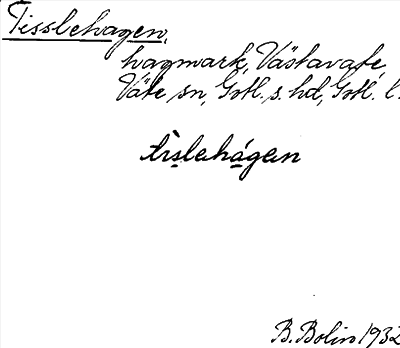 Tisslehagen,
hagmark, Västavate,
Väte sn, Gotl. s. hd, Gotl. l.
tìslehágen
B. Bolin 1932